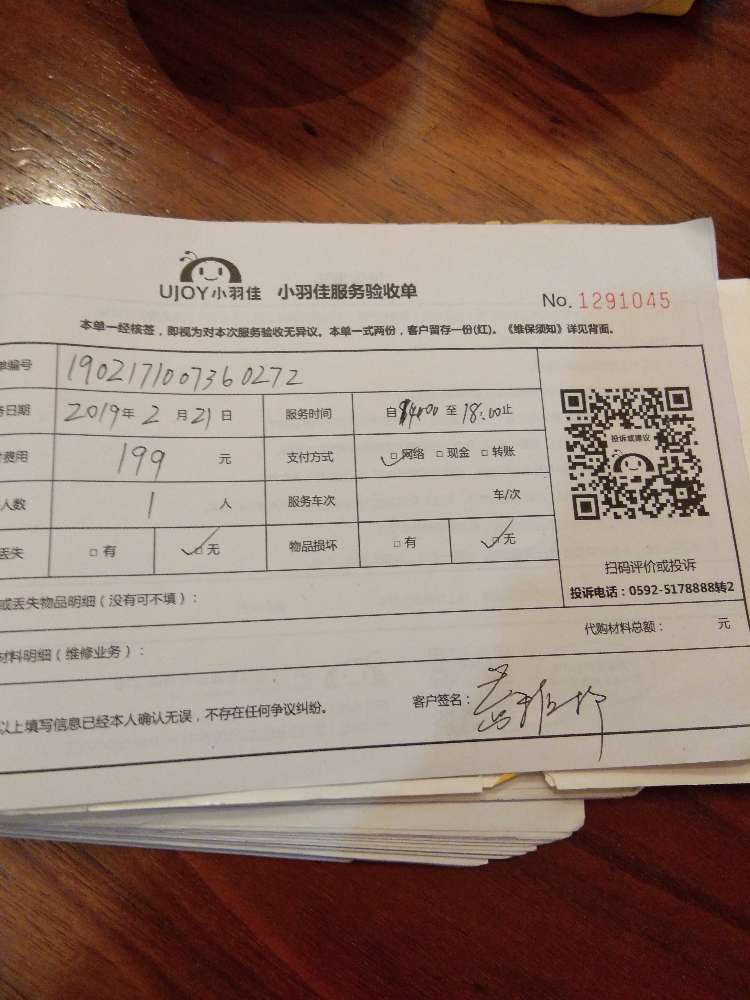 UJOY小羽佳 小羽佳服务验收单 No. 1291045
本单一经核签，即视为对本次服务验收无异议。本单一式两份，客户留存一份(红)。《维保须知》详见背面。
单编号 1902171007360272
务日期 2019年 2 月 21 日 服务时间 自 14:00 至 18:00止
费用 199 元 支付方式 □网络 □现金 □转账
人数 1 人 服务车次 车/次
丢失 □有 □无 物品损坏 □有 □无
投诉或建议
扫码评价或投诉
投诉电话：0592-5178888转2
或丢失物品明细（没有可不填）：
代购材料总额： 元
材料明细（维修业务）：
以上填写信息已经本人确认无误，不存在任何争议纠纷。 客户签名：